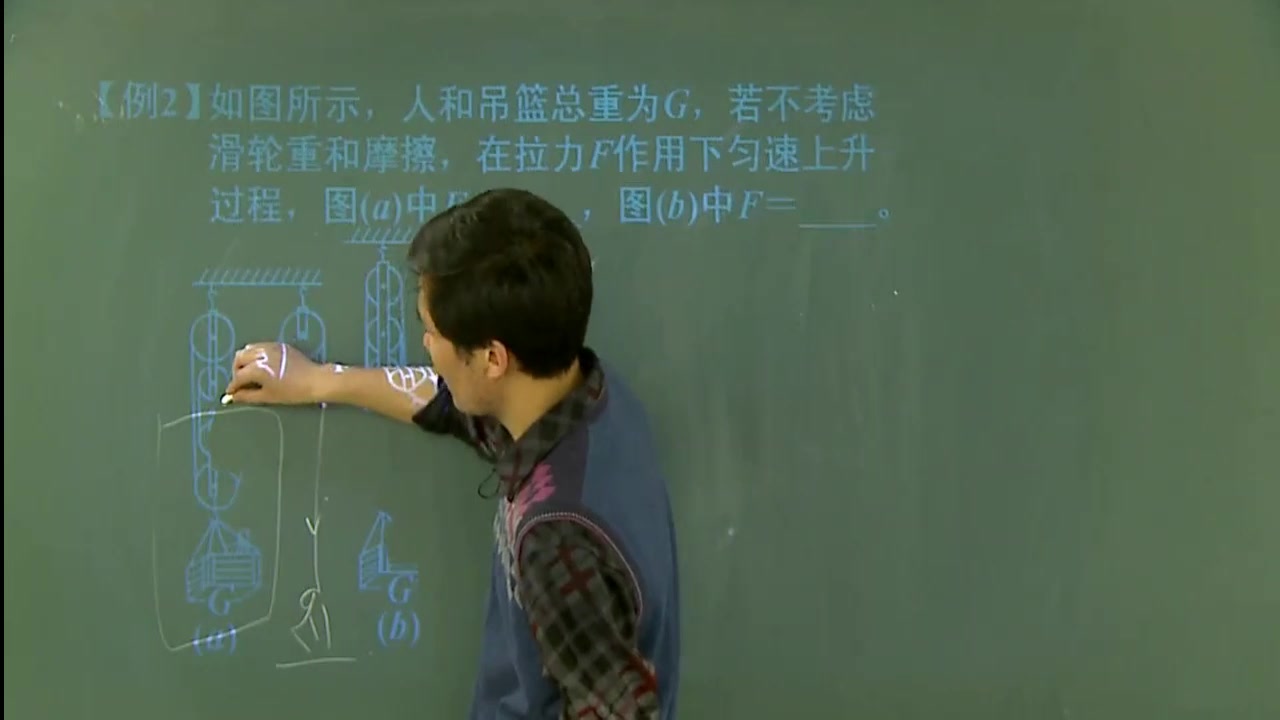 【例2】如图所示，人和吊篮总重为G，若不考虑
滑轮重和摩擦，在拉力F作用下匀速上升
过程，图(a)中F ，图(b)中F＝____。
G
G
(a)
(b)